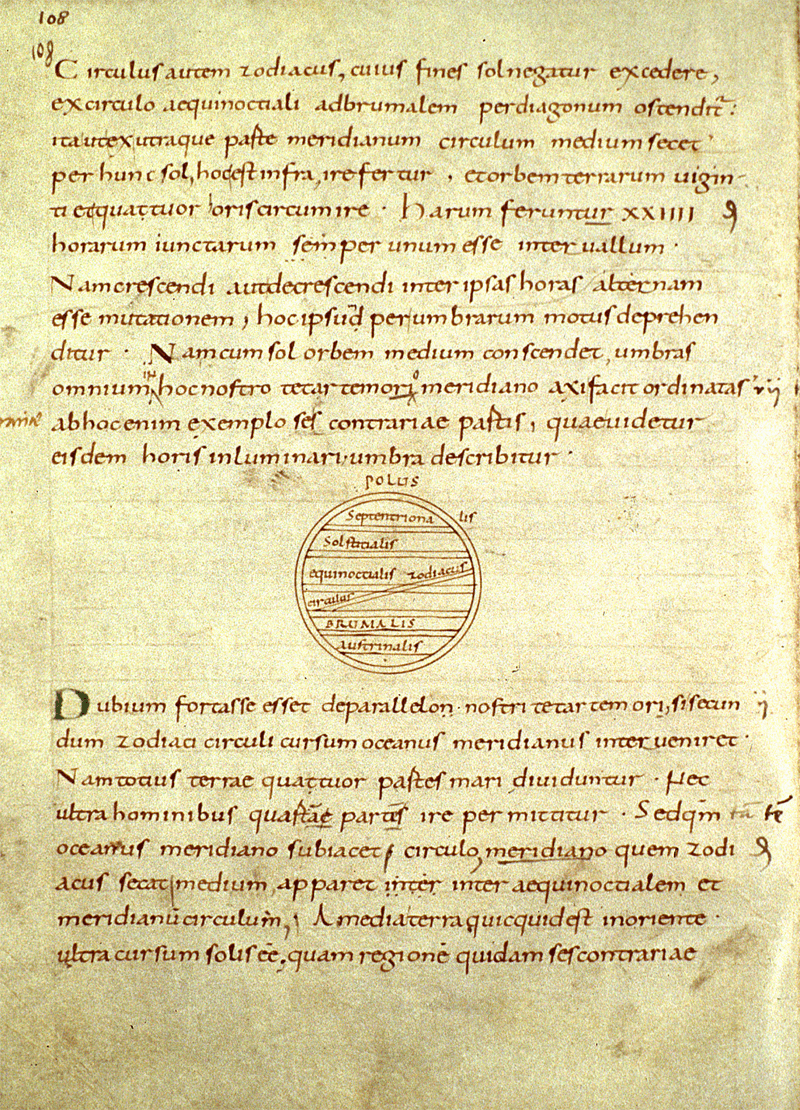 108
108
Circulus autem zodiacus, cuius fines sol negatur excedere,
ex circulo aequinoctiali ad brumalem per diagonum ostendit:
ita ut ex utraque parte meridianum circulum medium secet
per hunc sol, hoc est infra, ire fertur, et orbem terrarum uigin-
ti et quattuor oris circumire. Harum feruntur XXIIII
horarum iunctarum semper unum esse interuallum.
Nam crescendi aut decrescendi inter ipsas horas alternam
esse mutationem, hoc ipsud per umbrarum motus deprehen
ditur. Nam cum sol orbem medium conscendet, umbras
omnium in hoc nostro tetartemori meridiano axi facit ordinatas
ab hoc enim exemplo ses contrariae partis, quae uidetur
eisdem horis inluminari umbra describitur.
POLUS
Septentrionalis
Solstitialis
equinoctialis zodiacus
circulus
BRUMALIS
Austrinalis
Dubium fortasse esset de parallelon nostri tetartemori, si secun
dum zodiaci circuli cursum oceanus meridianus interueniret.
Nam totius terrae quattuor partes mari diuiduntur. Nec
ultra hominibus quartae partis ire permittitur. Sed qm̄
oceanus meridiano subiacet circulo, meridiano quem zodi
acus secat medium, apparet inter inter aequinoctialem et
meridianū circulum, A media terra quicquid est in oriente.
ultra cursum solis eē, quam regionē quidam ses contrariae